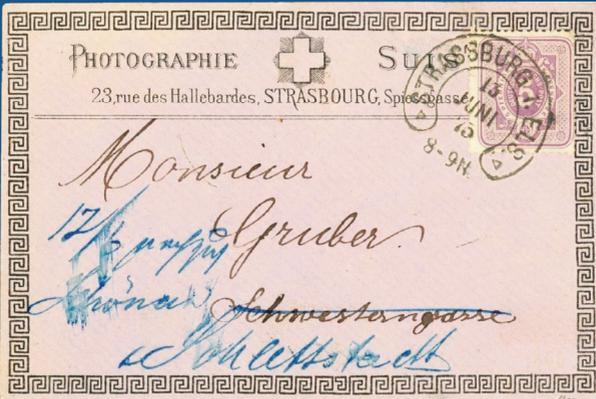 PHOTOGRAPHIE SUI
23, rue des Hallebardes, STRASBOURG, Spiessgasse
STRASSBURG i ELS.
13
JUNI
75
8-9N.
5
Monsieur
Gruber
12
Schwesterngasse
Schlettstadt